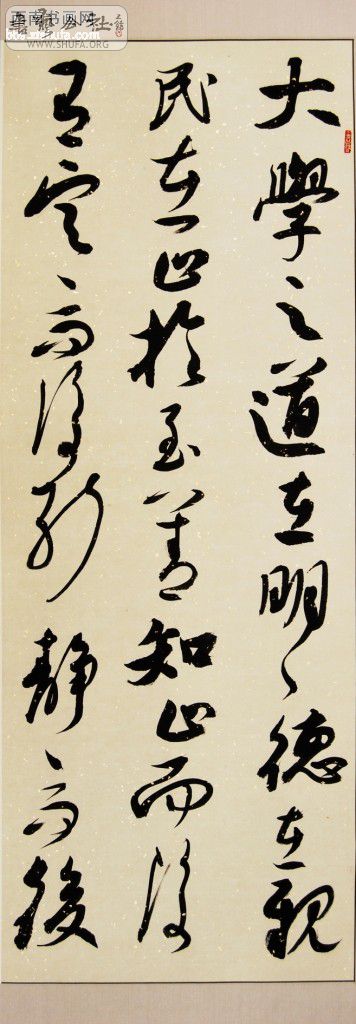 书画网
WWW.SHUFA.ORG
大學之道在明〻德在親
民在止於至善知止而後
有定〻而後能靜〻而後